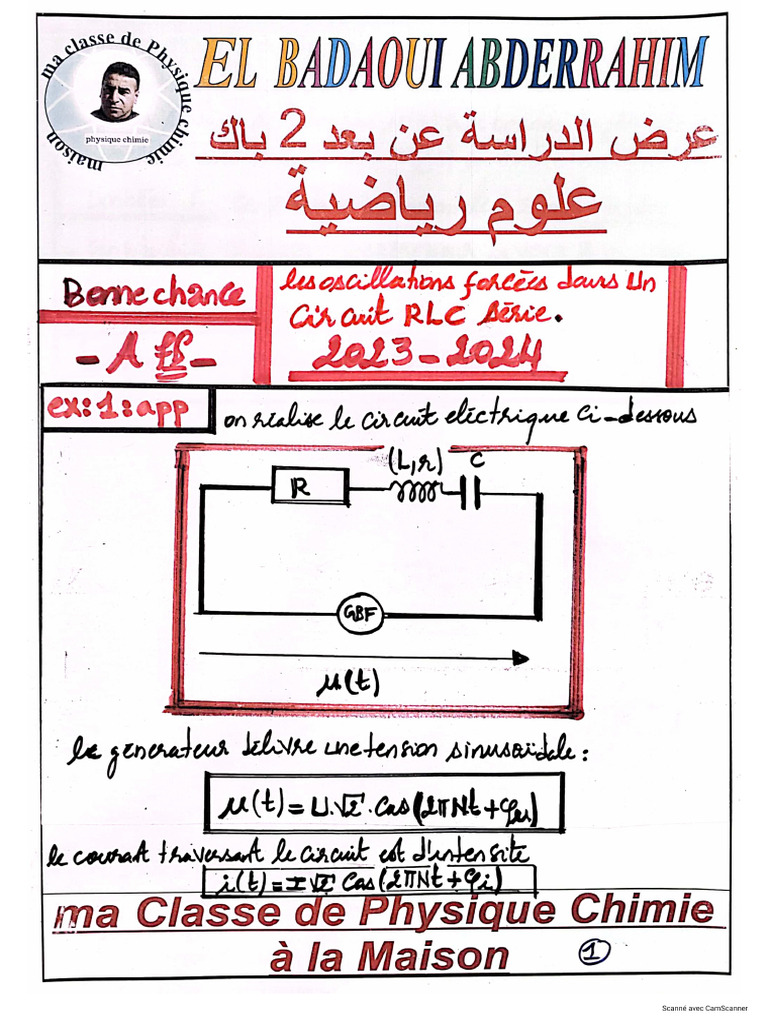 ma classe de Physique chimie
maison
physique chimie
EL BADAOUI ABDERRAHIM
عرض الدراسة عن بعد 2 باك
علوم رياضية
Bonne chance
les oscillations forcées dans un
Circuit RLC série.
2023-2024
ex:1:app
on réalise le circuit électrique ci-dessous
(L,r)
C
R
GBF
u(t)
le générateur délivre une tension sinusoïdale :
u(t) = U.√2.cos(2πNt+φu)
le courant traversant le circuit est d'intensité
i(t) = I√2 cos(2πNt+φi)
ma Classe de Physique Chimie
à la Maison
1
Scanné avec CamScanner